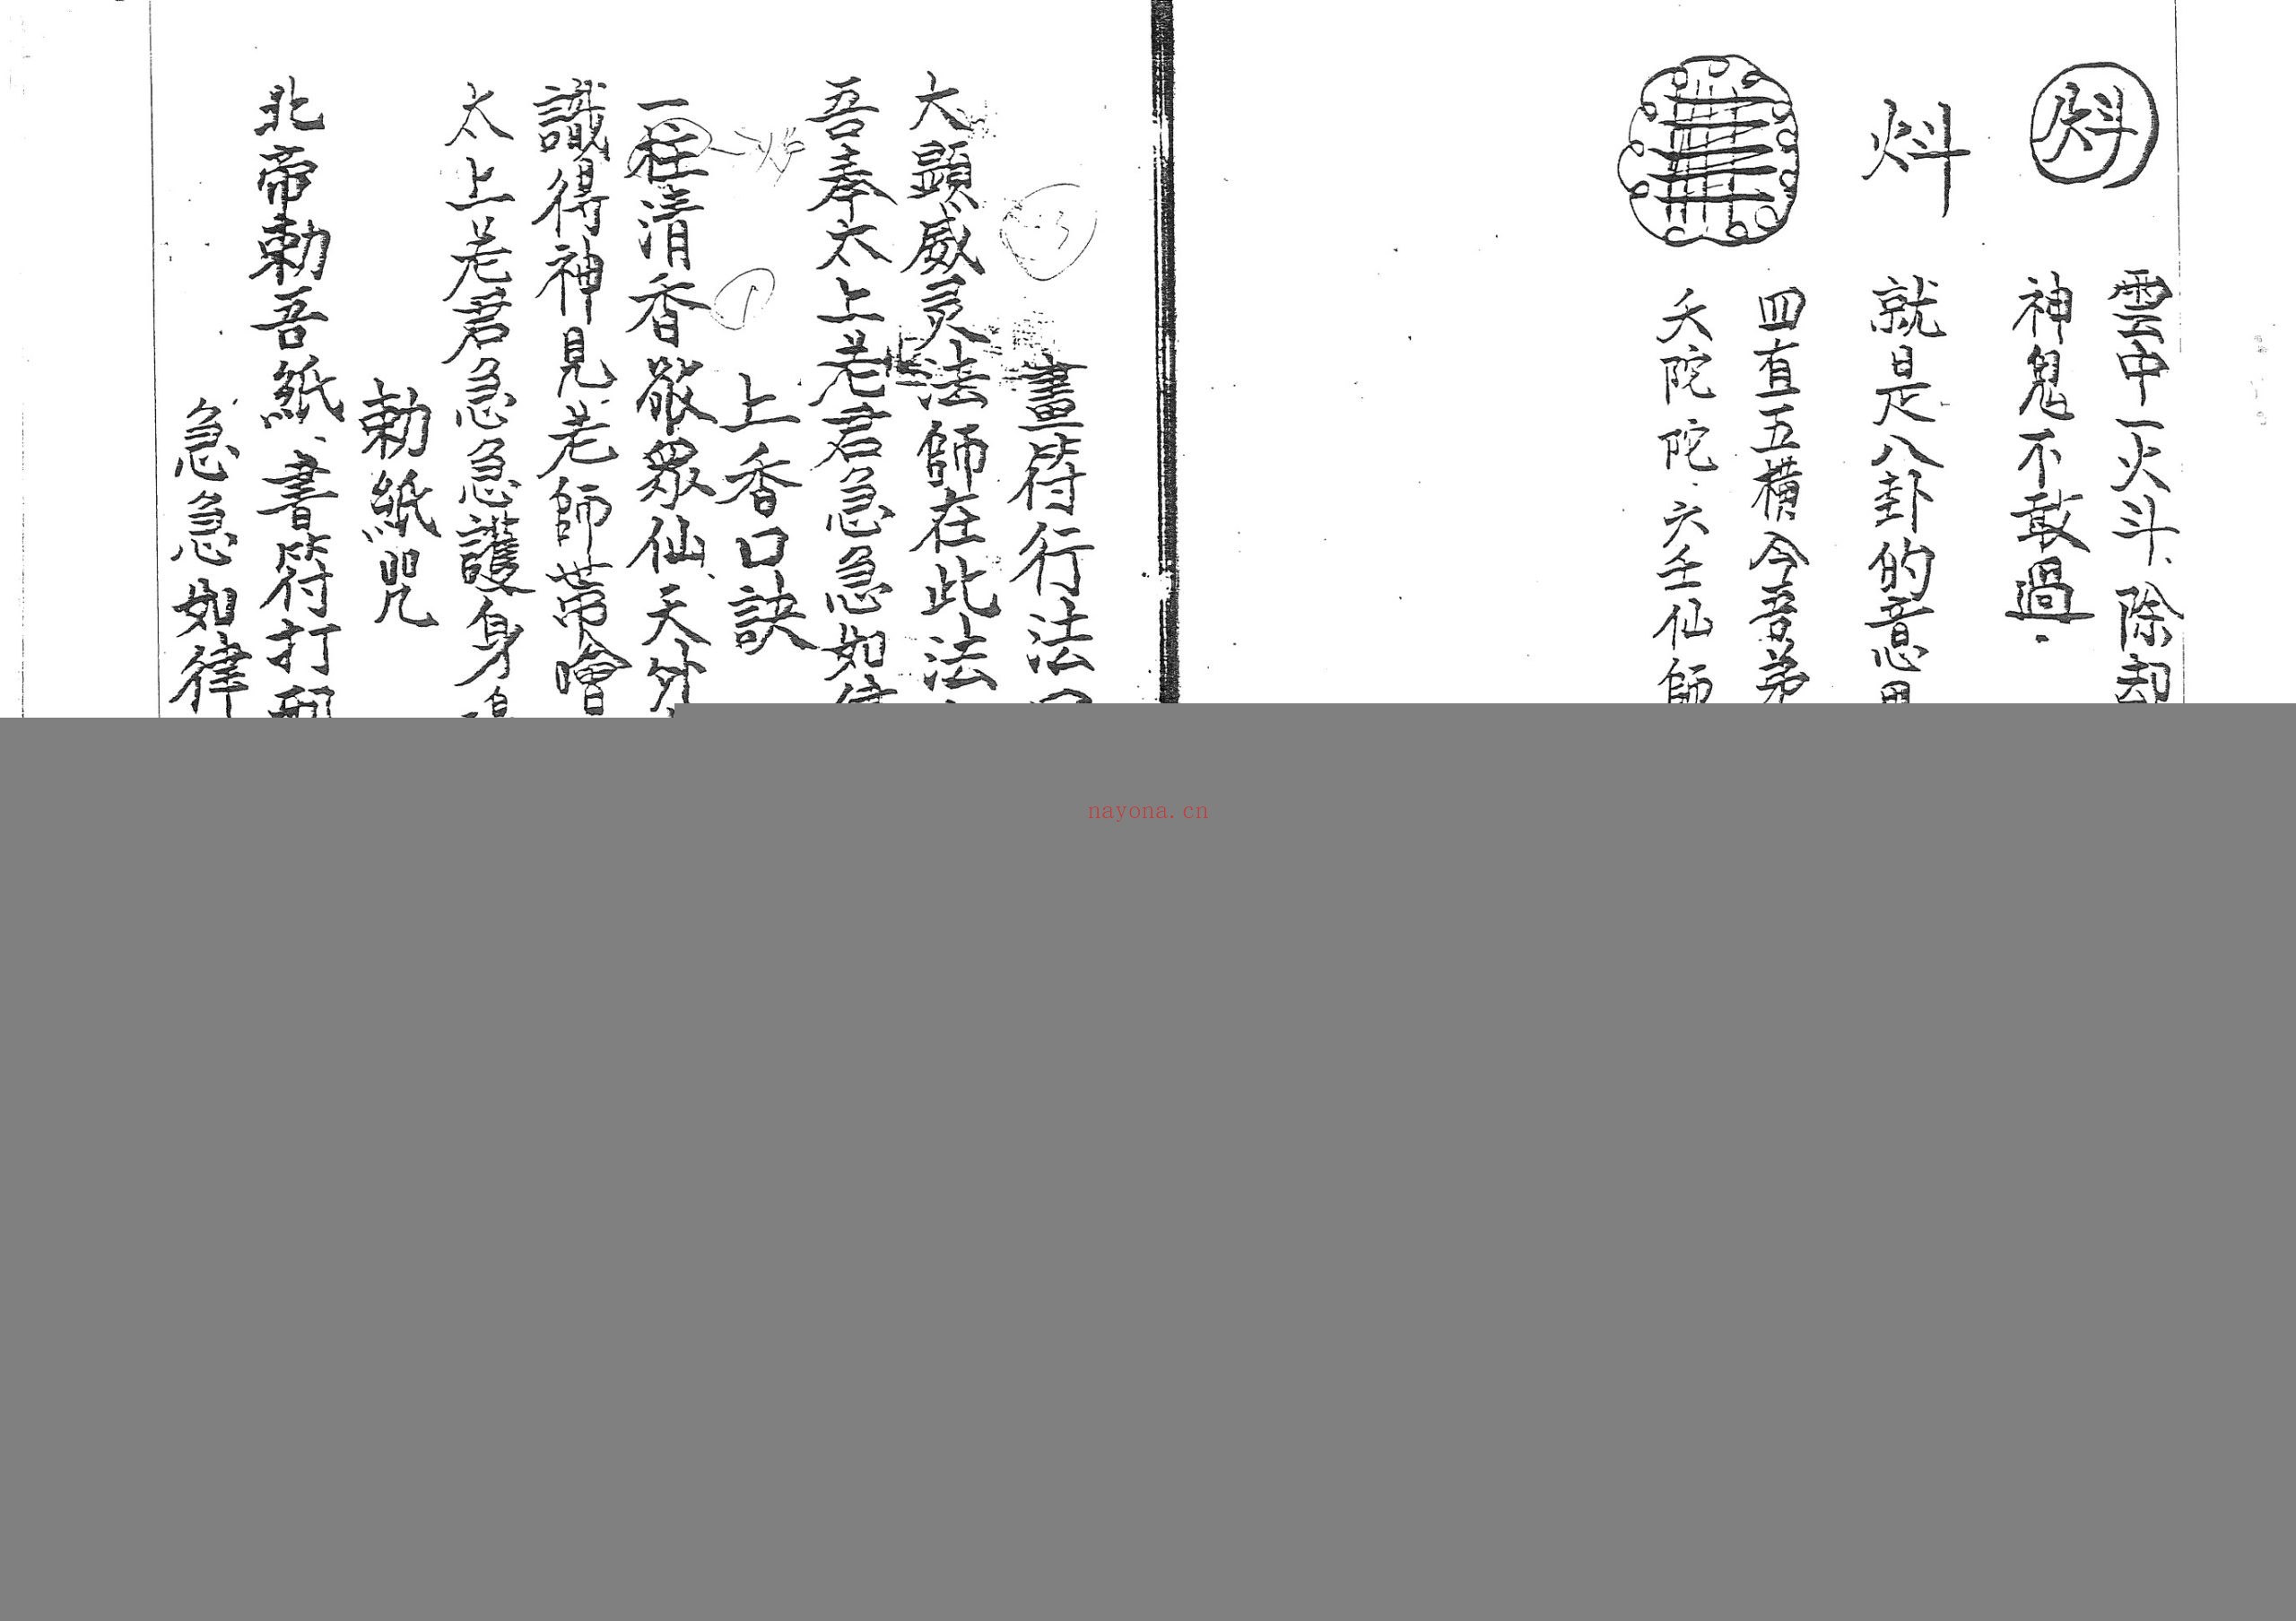 雲中一火斗、除却
神鬼不敢過．
就是八卦的意思
四直五橫今吾弟
陀陀．六壬仙師
畫符行法
大顯威灵法師在此法
吾奉太上老君急急如律
上香口訣
一柱清香敬眾仙、天外
識得神見老師帶噲
太上老君急急護身
勅紙咒
北帝勅吾紙、書符打邪
急急如律
nayona.cn